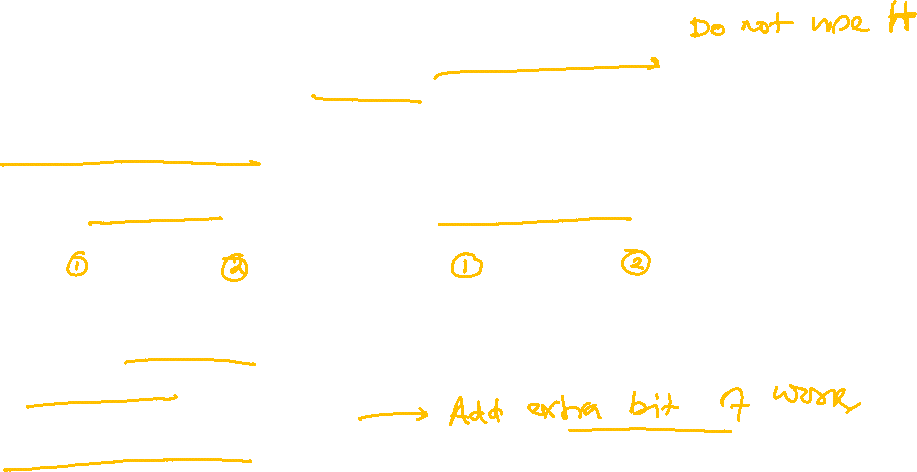 Do not use it
① ② ① ②
→ Add extra bit of work